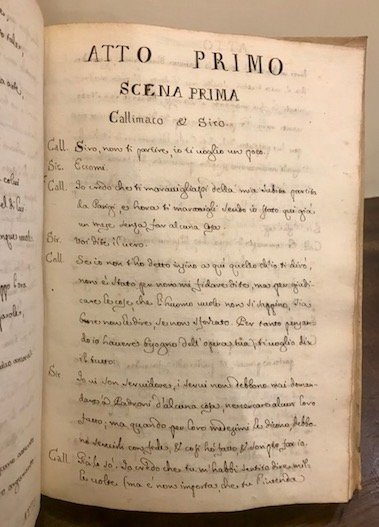 ATTO PRIMO
SCENA PRIMA
Callimaco & Siro.
Call. Siro, non ti partire, io ti voglio un poco.
Sir. Eccomi.
Call. Io credo che ti maravigliassi della mia subita partita
da Parigi, et hora ti maravigli sendo io stato qui già
un mese senza far alcuna cosa.
Sir. Voi dite il vero.
Call. Se io non t'ho detto infino a qui quello ch'io ti dirò,
non è stato per non mi fidare di te, ma per giudi=
care le cose, che l'huomo vuole non si sappino, sia
bene non le dire, se non sforzato. Per tanto pensan=
do io havere bisogno dell'opera tua, ti voglio dir
il tutto.
Sir. Io vi son servidore, i servi non debbono mai doman=
dare à Padroni d'alcuna cosa, ne cercare alcun loro
fatto, ma quando per loro medesimi le dicono, debbo=
no servirli con fede, & così hò fatto, & son per far io.
Call. Già lo sò. Io credo che tu m'habbi sentito dire mil=
le volte (ma e' non importa che tu l'intenda